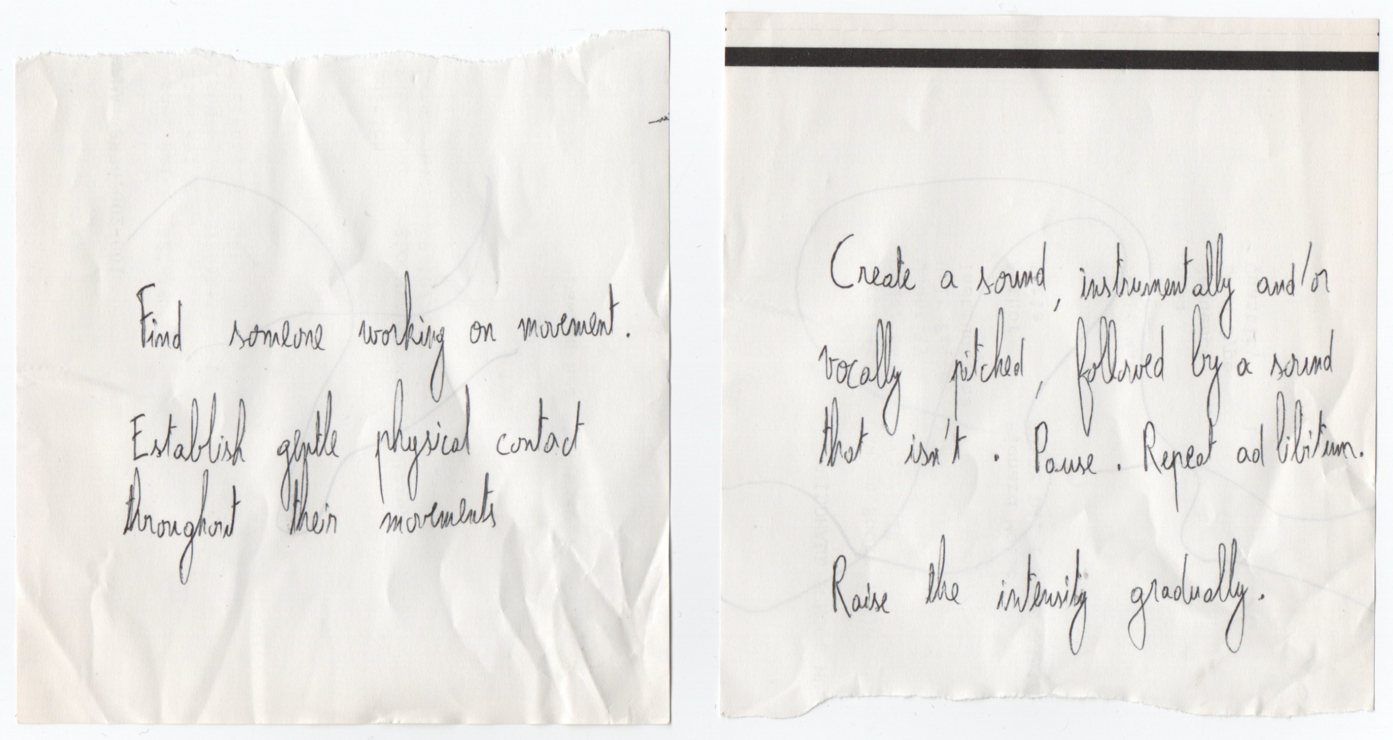 Find someone working on movement.
Establish gentle physical contact
throughout their movements
Create a sound, instrumentally and/or
vocally pitched, followed by a sound
that isn't. Pause. Repeat ad libitum.
Raise the intensity gradually.